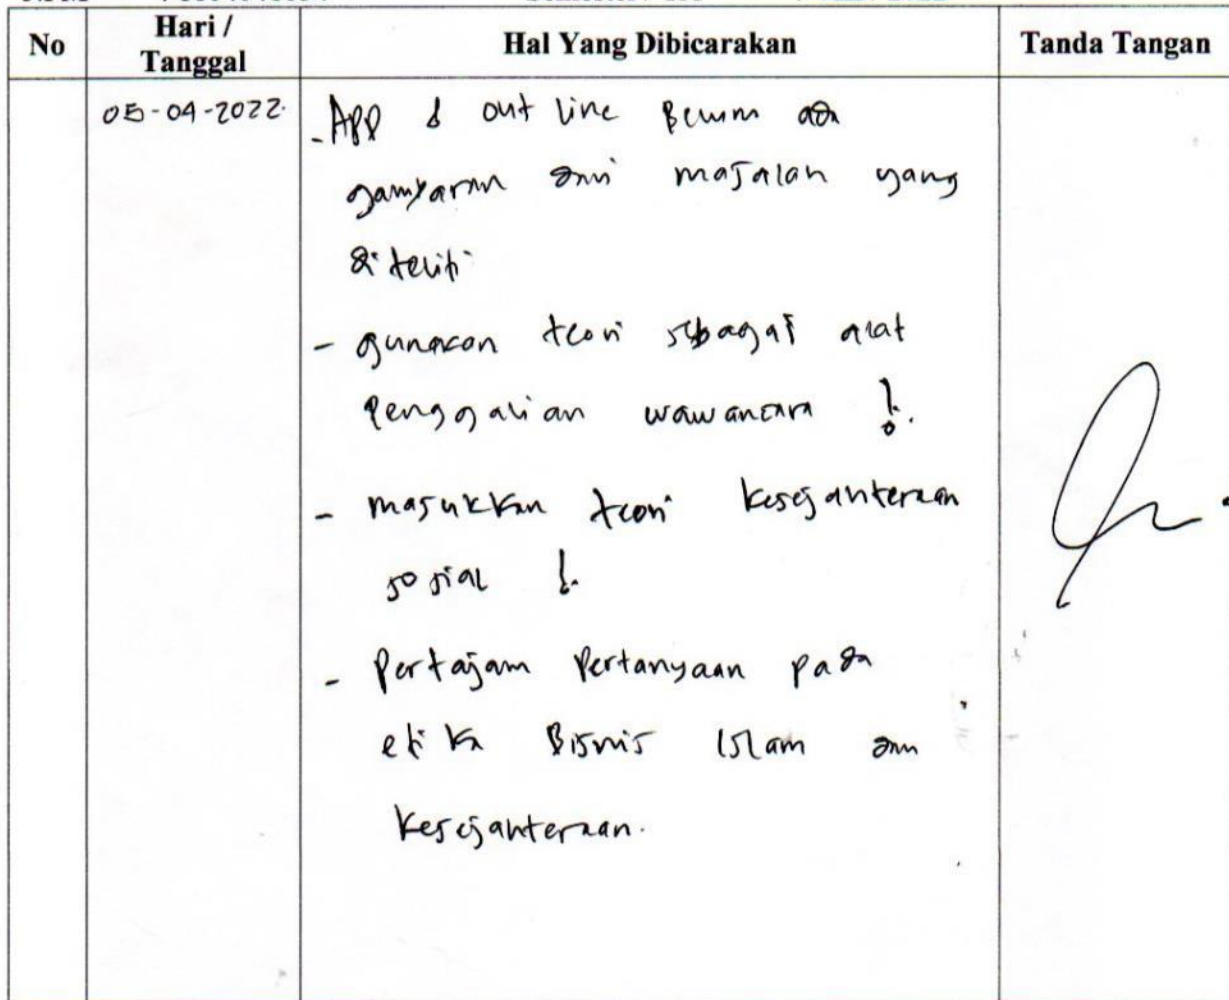 No
Hari /
Tanggal
Hal Yang Dibicarakan
Tanda Tangan
05-04-2022.
- APD & out line Belum ada
gambaran dari masalah yang
diteliti
- gunakan teori sebagai alat
Penggalian wawancara !.
- masukkan teori kesejahteraan
sosial !.
- Pertajam Pertanyaan pada
etika Bisnis Islam dan
Kesejahteraan.